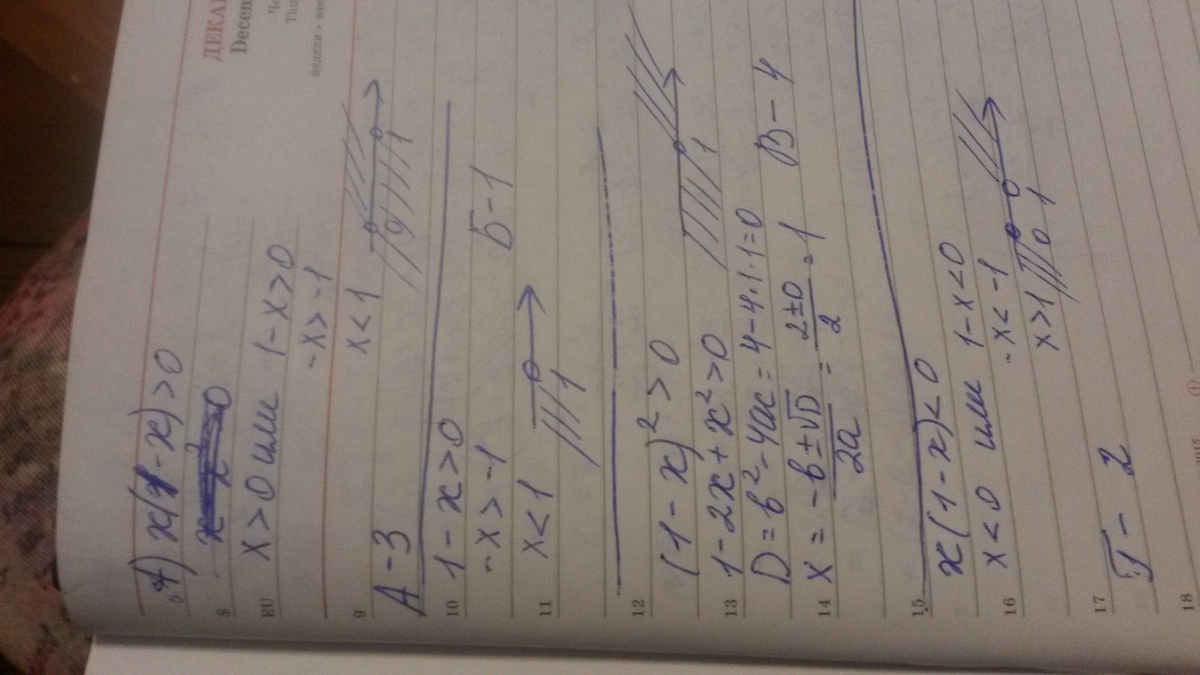 ДЕКАБ
Decem
Че
Thu
неделя • wee
4) x(1-x)>0
$
EU
x>0 или 1-x>0
-x>-1
x<1
0 1
9
А-3
10
1-x>0
-x>-1
Б-1
11
x<1
1
12
(1-x)²>0
1-2x+x²>0
1
13
D=b²-4ac=4-4·1·1=0
x = -b±√D / 2a = 2±0 / 2 = 1
В-4
14
15
x(1-x)<0
x<0 или 1-x<0
16
-x<-1
x>1
0 1
17
Г-2
18